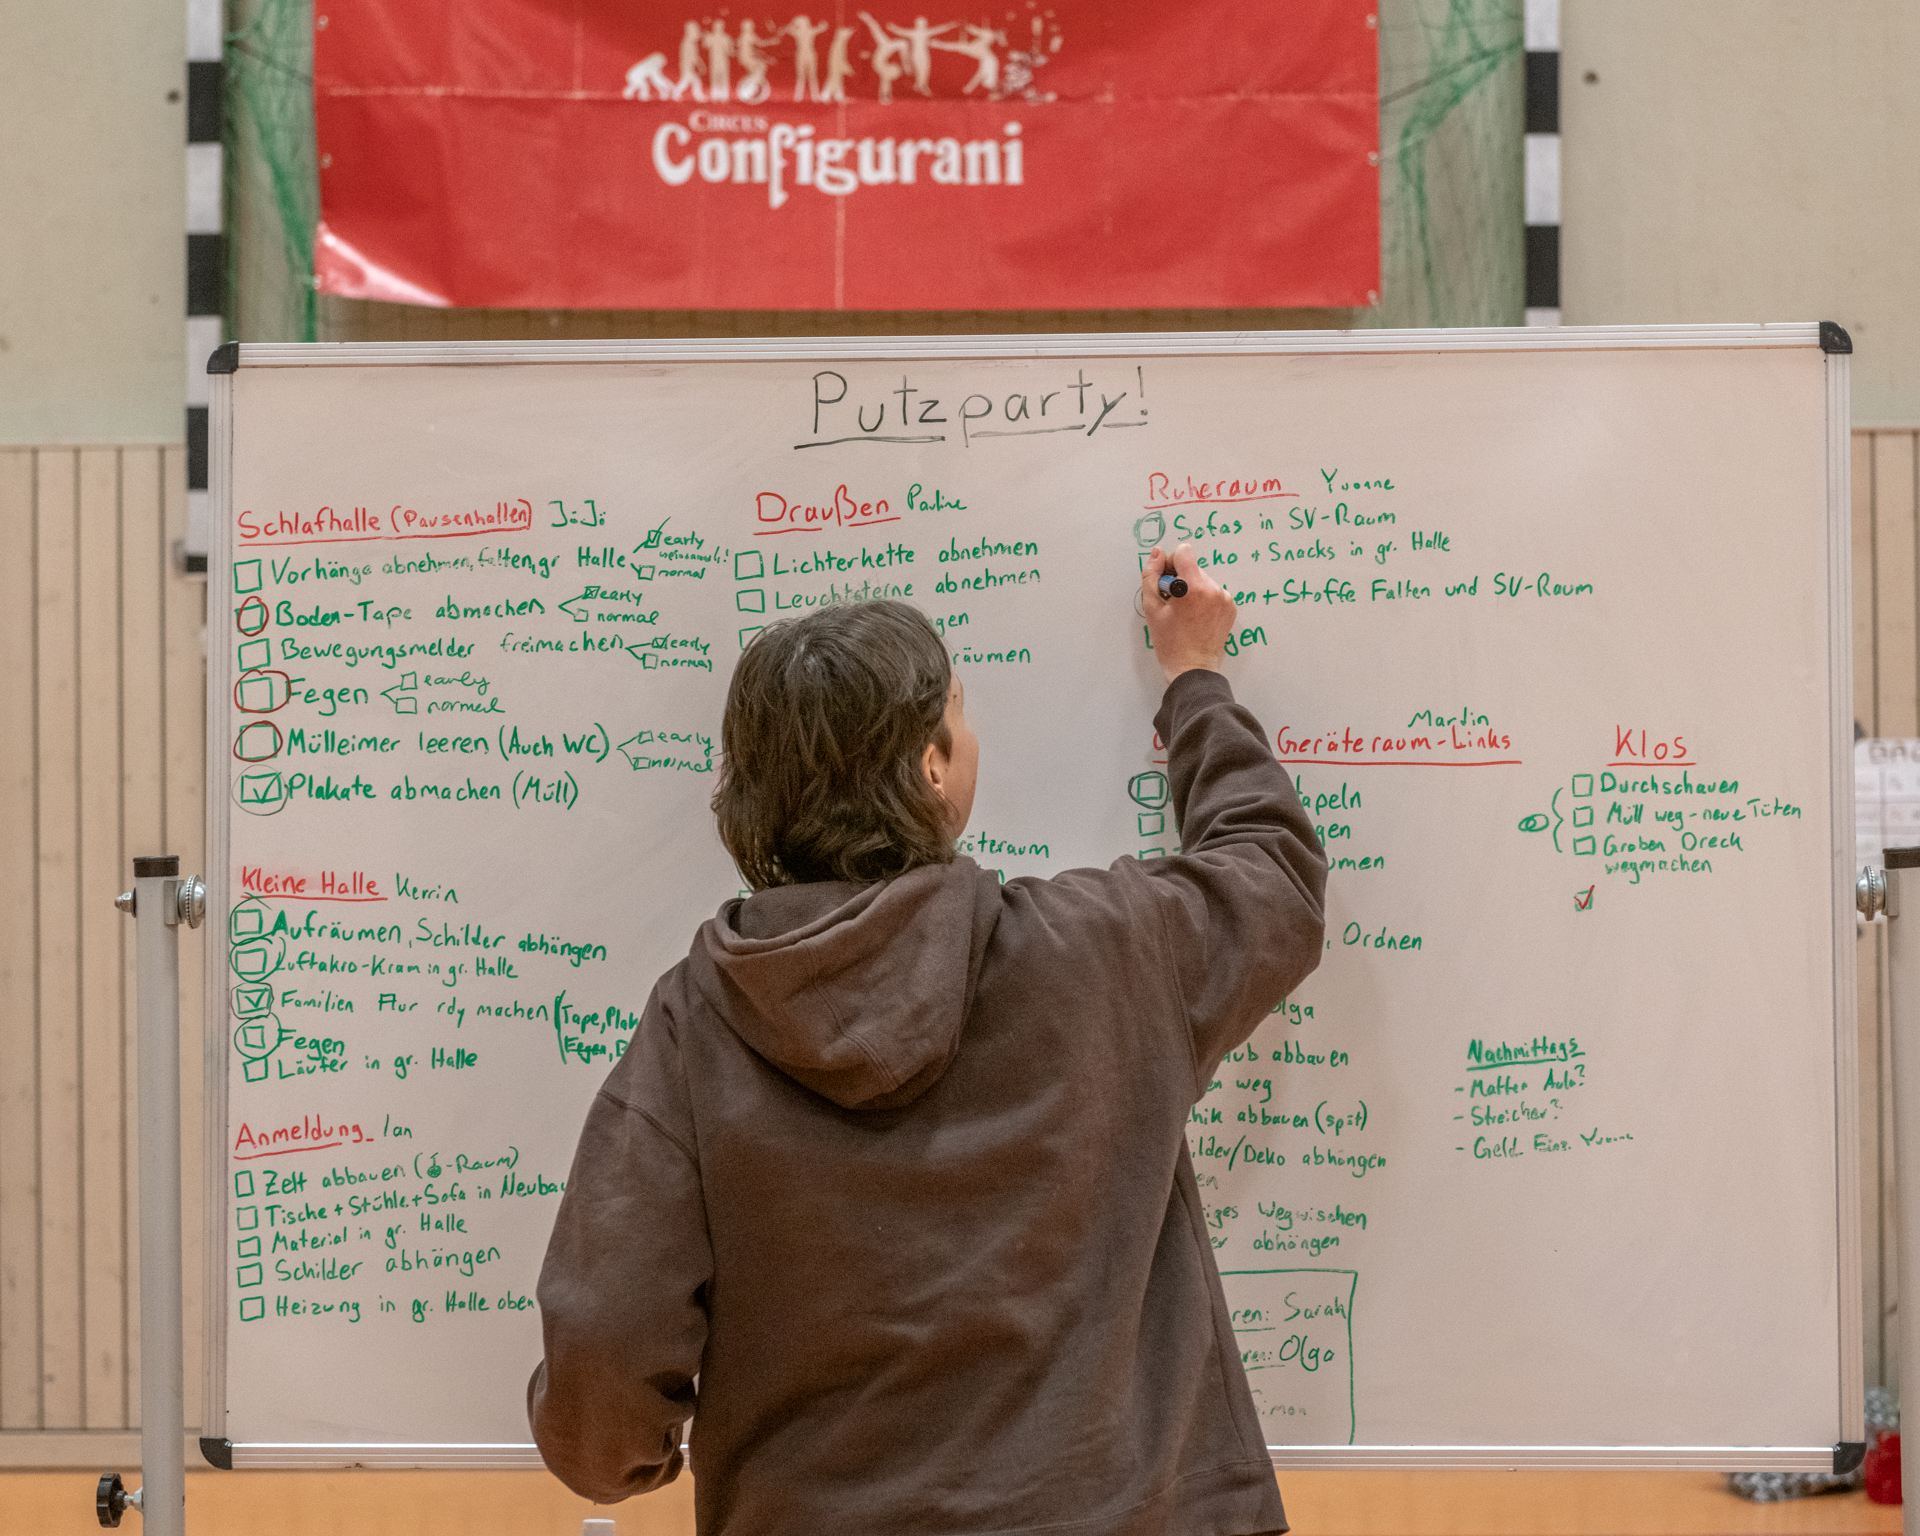 CIRCUS
Configurani
Putzparty!
Schlafhalle (Pausenhallen) JoJo
Vorhänge abnehmen, falten, gr Halle
early
normal
Boden-Tape abmachen
early
normal
Bewegungsmelder freimachen
early
normal
Fegen
early
normal
Mülleimer leeren (Auch WC)
early
normal
Plakate abmachen (Müll)
Kleine Halle Kerrin
Aufräumen, Schilder abhängen
Luftakro-Kram in gr. Halle
Familien Flur rdy machen (Tape, Plak
Fegen,
Fegen
Läufer in gr. Halle
Anmeldung Ian
Zelt abbauen ( -Raum)
Tische + Stühle + Sofa in Neubau
Material in gr. Halle
Schilder abhängen
Heizung in gr. Halle oben
Draußen Pauline
Lichterkette abnehmen
Leuchtsterne abnehmen
gen
räumen
räteraum
Ruheraum Yvonne
Sofas in SV-Raum
eko + Snacks in gr. Halle
en + Stoffe Falten und SV-Raum
gen
Martin
Geräteraum-Links
tapeln
gen
umen
, Ordnen
lga
aub abbauen
en weg
hik abbauen (spät)
ilder/Deko abhängen
en
iges wegwischen
er abhängen
ren: Sarah
ren: Olga
Simon
Klos
Durchschauen
Müll weg - neue Tüten
Groben Dreck
wegmachen
Nachmittags
- Matten Aula?
- Streicher?
- Geld Eins. Yvonne